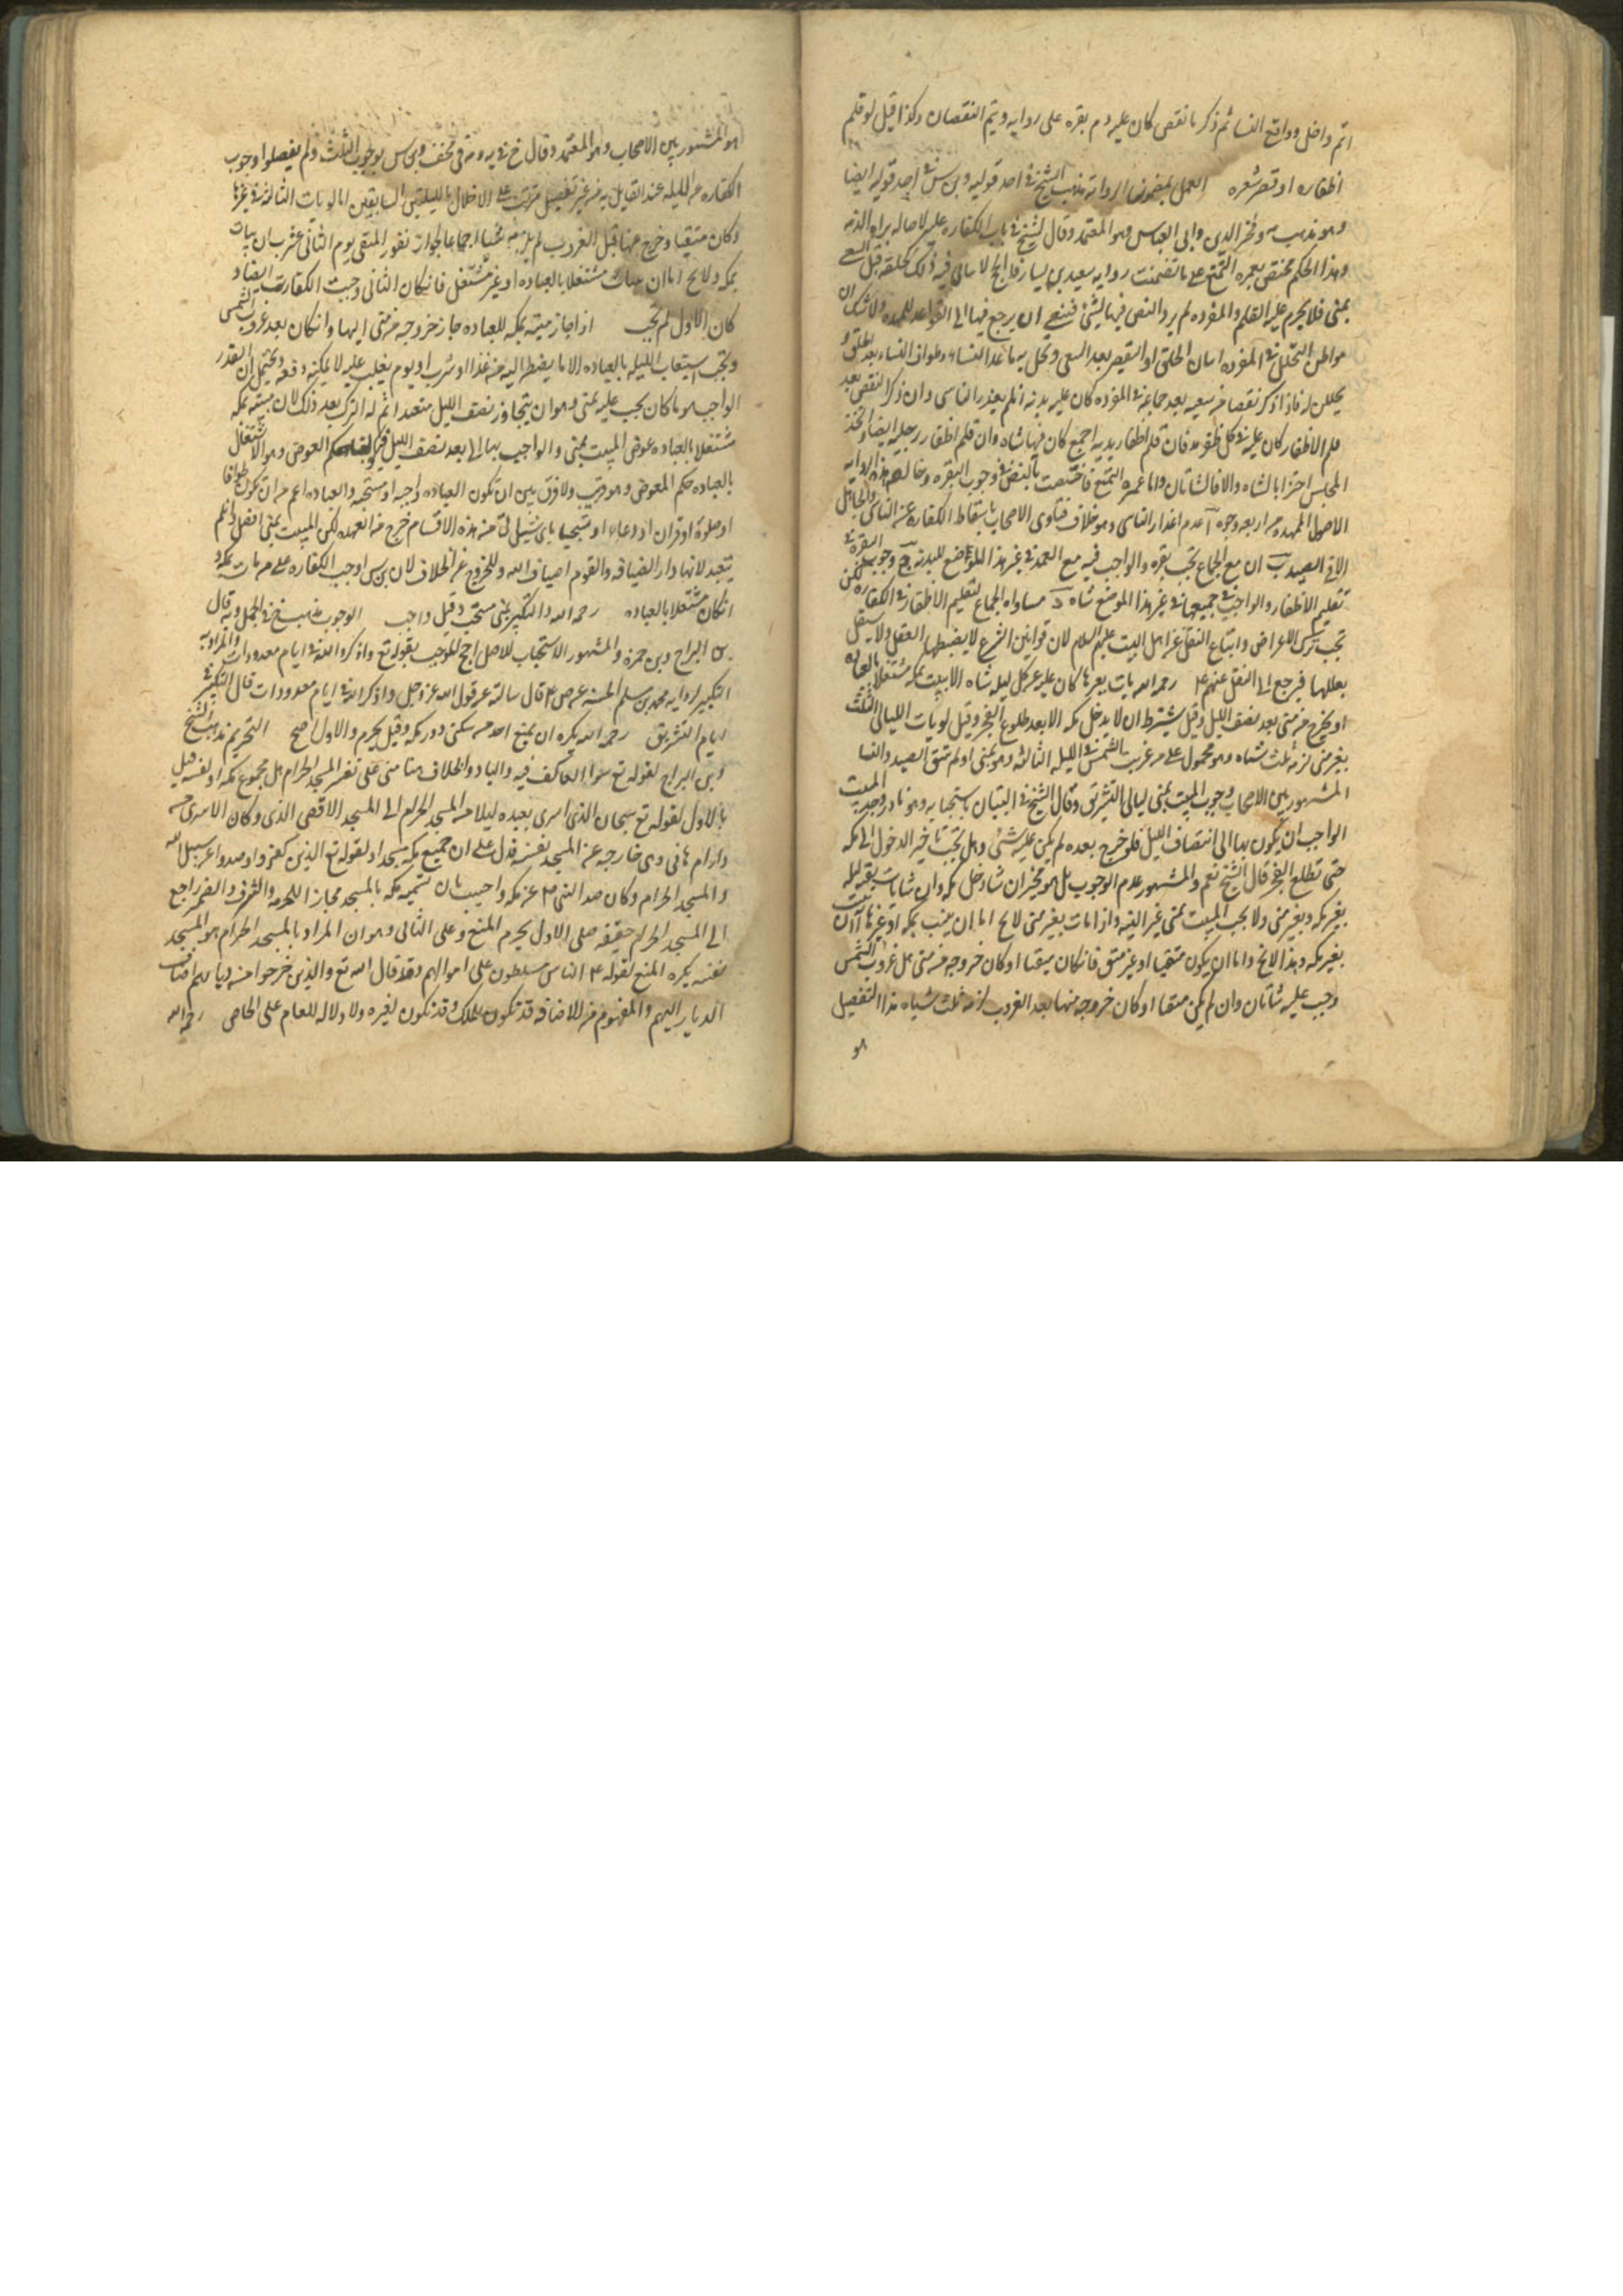 اتم واحل وواقع النسا ثم ذكر ما نقص كان عليه دم بقره على روايه ويتم النقصان وكذا قيل لو قلم
اظفاره او قصر شعره العمل بمضمون الروايه مذهب الشيخ في احد قوليه وبن س في احد قوليه ايضا
وهو مذهب وفخر الدين وابي العباس وهو المعتمد وقال الشيخ في باب الكفاره عليه لاصاله براه الذمه
وهذا الحكم مختص بعمره التمتع على ما تضمنت روايه سعيد بن يسار
بمنى فلا يحرم عليه القلم والمفرده لم يرد النص فيها بشئ فينبغي ان يرجع فيها الى القواعد الممهده ولا شك ان
مواطن التحلل في المفرده اسان الحلق او التقصير بعد السعي ويحل به ما عدا النساء وطواف النساء بعد الحلق و
يحللن له فاذا ذكر نقصا من سعيه بعد جماعه في المفرده كان عليه بدنه ان لم يعذر الناسي وان ذكر النقص بعد
قلم الاظفار كان عليه في كل ظفر مد فان قلم اظفار يديه اجمع كان فيها شاه وان قلم اظفار رجليه ايضا واتحد
المجلس اجتزا بالشاه والا فالشاتان واما عمره التمتع فاختصت بالنص في وجوب البقره وخالف هذه الروايه
الاصول الممهده من اربعه وجوه آ عدم اعذار الناسي وهو خلاف فتاوى الاصحاب باسقاط الكفاره عن الناسي والجاهل
الا في الصيد ب ان مع الجماع تجب بقره والواجب فيه مع العمد في غير هذا الموضع للبدنه ج وجوب البقره في
تقليم الاظفار والواجب في جميعها في غير هذا الموضع شاه د مساواه الجماع لتقليم الاظفار في الكفاره لكن
تجب ترك الاعراض واتباع النقل عن اهل البيت عليهم السلام لان قوانين الشرع لا يضبطها العقل ولا يستقل
بعللها فيرجع الى النقل عنهم ع رحمه الله بات بغيرها كان عليه عن كل ليله شاه الا ان يبيت بمكه مشتغلا بالعباده
او يخرج من منى بعد نصف الليل وقيل يشترط ان لا يدخل مكه الا بعد طلوع الفجر وقيل لو بات الليالي الثلث
بغير منى لزمه ثلث شياه وهو محمول على من غربت الشمس في الليله الثالثه وهو بمنى او لم يتق الصيد والنسا
المشهور بين الاصحاب وجوب المبيت بمنى ليالي التشريق وقال الشيخ في التبيان باستحبابه وهو نادر وحد المبيت
الواجب ان يكون بها الى انتصاف الليل فلو خرج بعده لم يكن عليه شئ وهل يجب تاخير الدخول الى مكه
حتى تطلع الفجر قال الشيخ نعم والمشهور عدم الوجوب بل هو مخير ان شا دخل مكه وان شا بات بقيه ليله
بغير مكه وبغير منى ولا يجب المبيت بمنى غير الليه واذا بات بغير منى لا يخ اما ان يبيت بمكه او غيرها فان بات
بغير مكه وهذا لا يخ واما ان يكون متقيا او غير متق فان كان متقيا او كان خروجه من منى قبل غروب الشمس
وجب عليه شاتان وان لم يكن متقيا او كان خروجه منها بعد الغروب لزمه ثلث شياه هذا التفصيل
هو
هو المشهور بين الاصحاب وهو المعتمد وقال خ في يه وبن س بوجوب الثلث ولم يفصلوا وجوب
الكفاره من الليله عند القايل به من غير تفصيل مرتب على الاخلال بالليلتين السابقتين اما لو بات الثالثه في غيرها
وكان متقيا وخرج منها قبل الغروب لم يلزمه شيئا اجماعا لجواز نفور المتقي يوم الثاني عشر ان بات
بمكه ولا يخ اما ان بات مشتغلا بالعباده او غير مشتغل فان كان الثاني وجبت الكفاره ايضا و
كان الاول لم تجب اذا جاز مبيته بمكه للعباده جاز خروجه من منى اليها وان كان بعد غروب الشمس
وتجب استيعاب الليله بالعباده الا ما يضطر اليه من غذا او شرب او نوم يغلب عليه لا يمكنه دفعه ويحتمل ان القدر
الواجب هو ما كان يجب عليه بمنى وهو ان يتجاوز نصف الليل متعبدا ثم له الترك بعد ذلك لان مبيته بمكه
مشتغلا بالعباده عوض المبيت بمنى والواجب بها الى بعد نصف الليل فيكون حكم العوض وهو الاشتغال
بالعباده حكم المعوض وهو قريب ولا فرق بين ان تكون العباده واجبه او مستحبه والعباده اعم من ان تكون طوافا
او صلوة او قران او دعا او تسبيحا باي شئ اتى من هذه الاقسام خرج من العهده لكن المبيت بمنى افضل وان لم
يتعبد لانها دار الضيافه والقوم اضياف الله وللخروج عن الخلاف لان بن س اوجب الكفاره على من بات بمكه و
ان كان مشتغلا بالعباده رحمه الله والتكبير بمنى مستحب وقيل واجب الوجوب مذهب خ في الجمل وبه قال
بن البراج وبن حمزه والمشهور الاستحباب للاصل احتج الموجب بقوله تع واذكروا الله في ايام معدودات والمراد به
التكبير لروايه محمد بن مسلم الحسنه عن ص ع قال سالته عن قول الله عز وجل واذكروا الله في ايام معدودات قال التكبير في
ايام التشريق رحمه الله يكره ان يمنع احد من سكنى دور مكه وقيل يحرم والاول اصح التحريم مذهب الشيخ
وبن البراج لقوله تع سوا العاكف فيه والباد والخلاف هنا مبني على تفسير المسجد الحرام هل مجموع مكه او نفسه قيل
بالاول لقوله تع سبحان الذي اسرى بعبده ليلا من المسجد الحرام الى المسجد الاقصى الذي وكان الاسرى من
دار ام هاني وهي خارجه عن المسجد نفسه فدل على ان جميع مكه مسجد او لقوله تع الذين كفروا وصدوا عن سبيل الله
والمسجد الحرام وكان صد النبي ع عن مكه واجيب بان تسميه مكه بالمسجد مجازا للحرمه والشرف والضمير راجع
الى المسجد الحرام حقيقه فعلى الاول يحرم المنع وعلى الثاني وهو ان المراد بالمسجد الحرام هو المسجد
نفسه يكره المنع لقوله ع الناس مسلطون على اموالهم وقد قال الله تع والذين خرجوا من ديارهم اضاف
الديار اليهم والمفهوم من الاضافه قد تكون للملك وقد تكون لغيره ولا دلاله للعام على الخاص رحمه الله